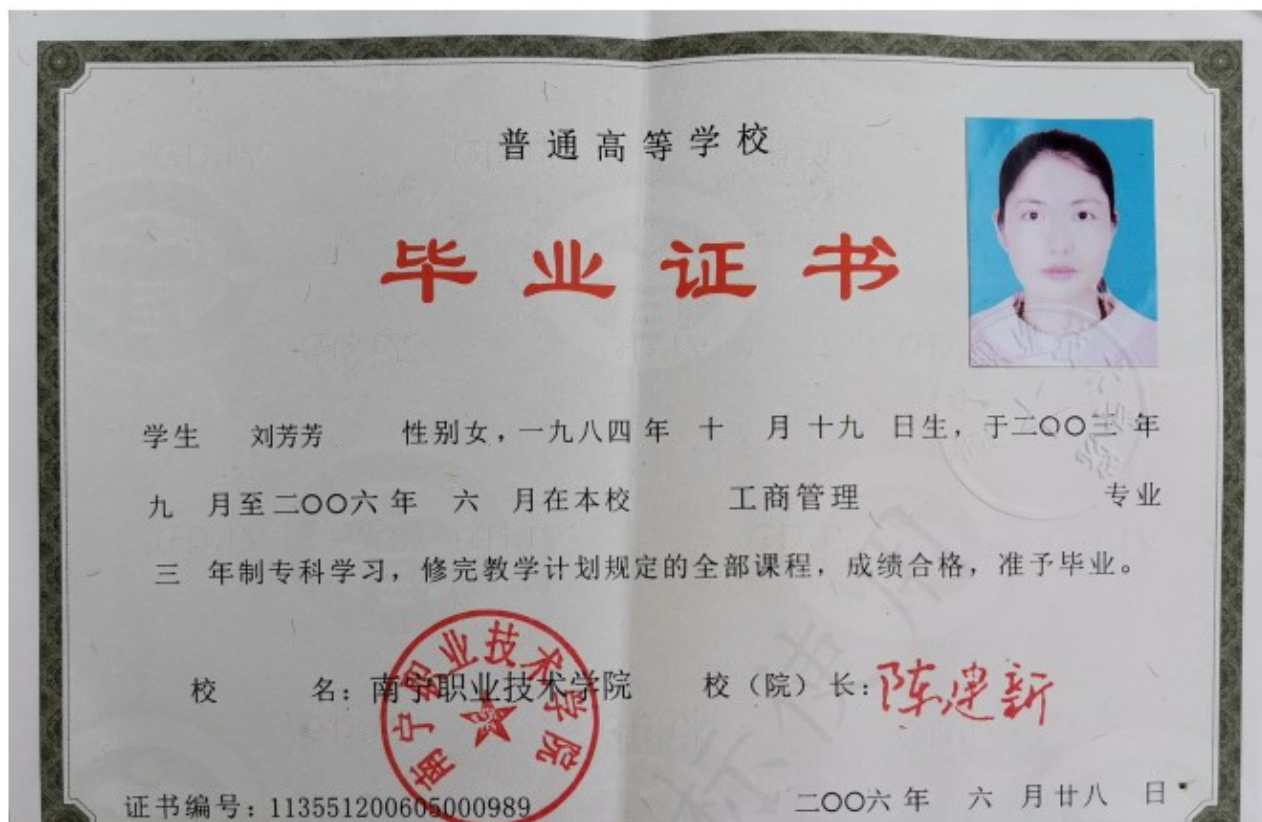 普通高等学校
毕业证书
学生 刘芳芳 性别女，一九八四年 十 月十九 日生，于二〇〇三年
九 月至二〇〇六年 六 月在本校 工商管理 专业
三 年制专科学习，修完教学计划规定的全部课程，成绩合格，准予毕业。
校 名：南宁职业技术学院 校（院）长：陈建新
南宁职业技术学院
证书编号：113551200605000989 二〇〇六年 六 月廿八 日